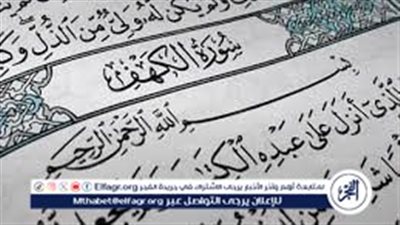 لَّهُ وَلَمْ يَكُن لَّهُ وَلِيٌّ مِّنَ الذُّلِّ وَكَ
سُورَةُ الْكَهْفِ
بِسْمِ اللَّهِ الرَّحْمَنِ الرَّحِيمِ
الَّذِي أَنزَلَ عَلَى عَبْدِهِ الْكِتَـ
لمتابعة أهم وآخر الأخبار يرجى الاشتراك في جريدة الفجر Elfagr.org
للإعلان يرجى التواصل عبر Mthabet@elfagr.org
الفجر